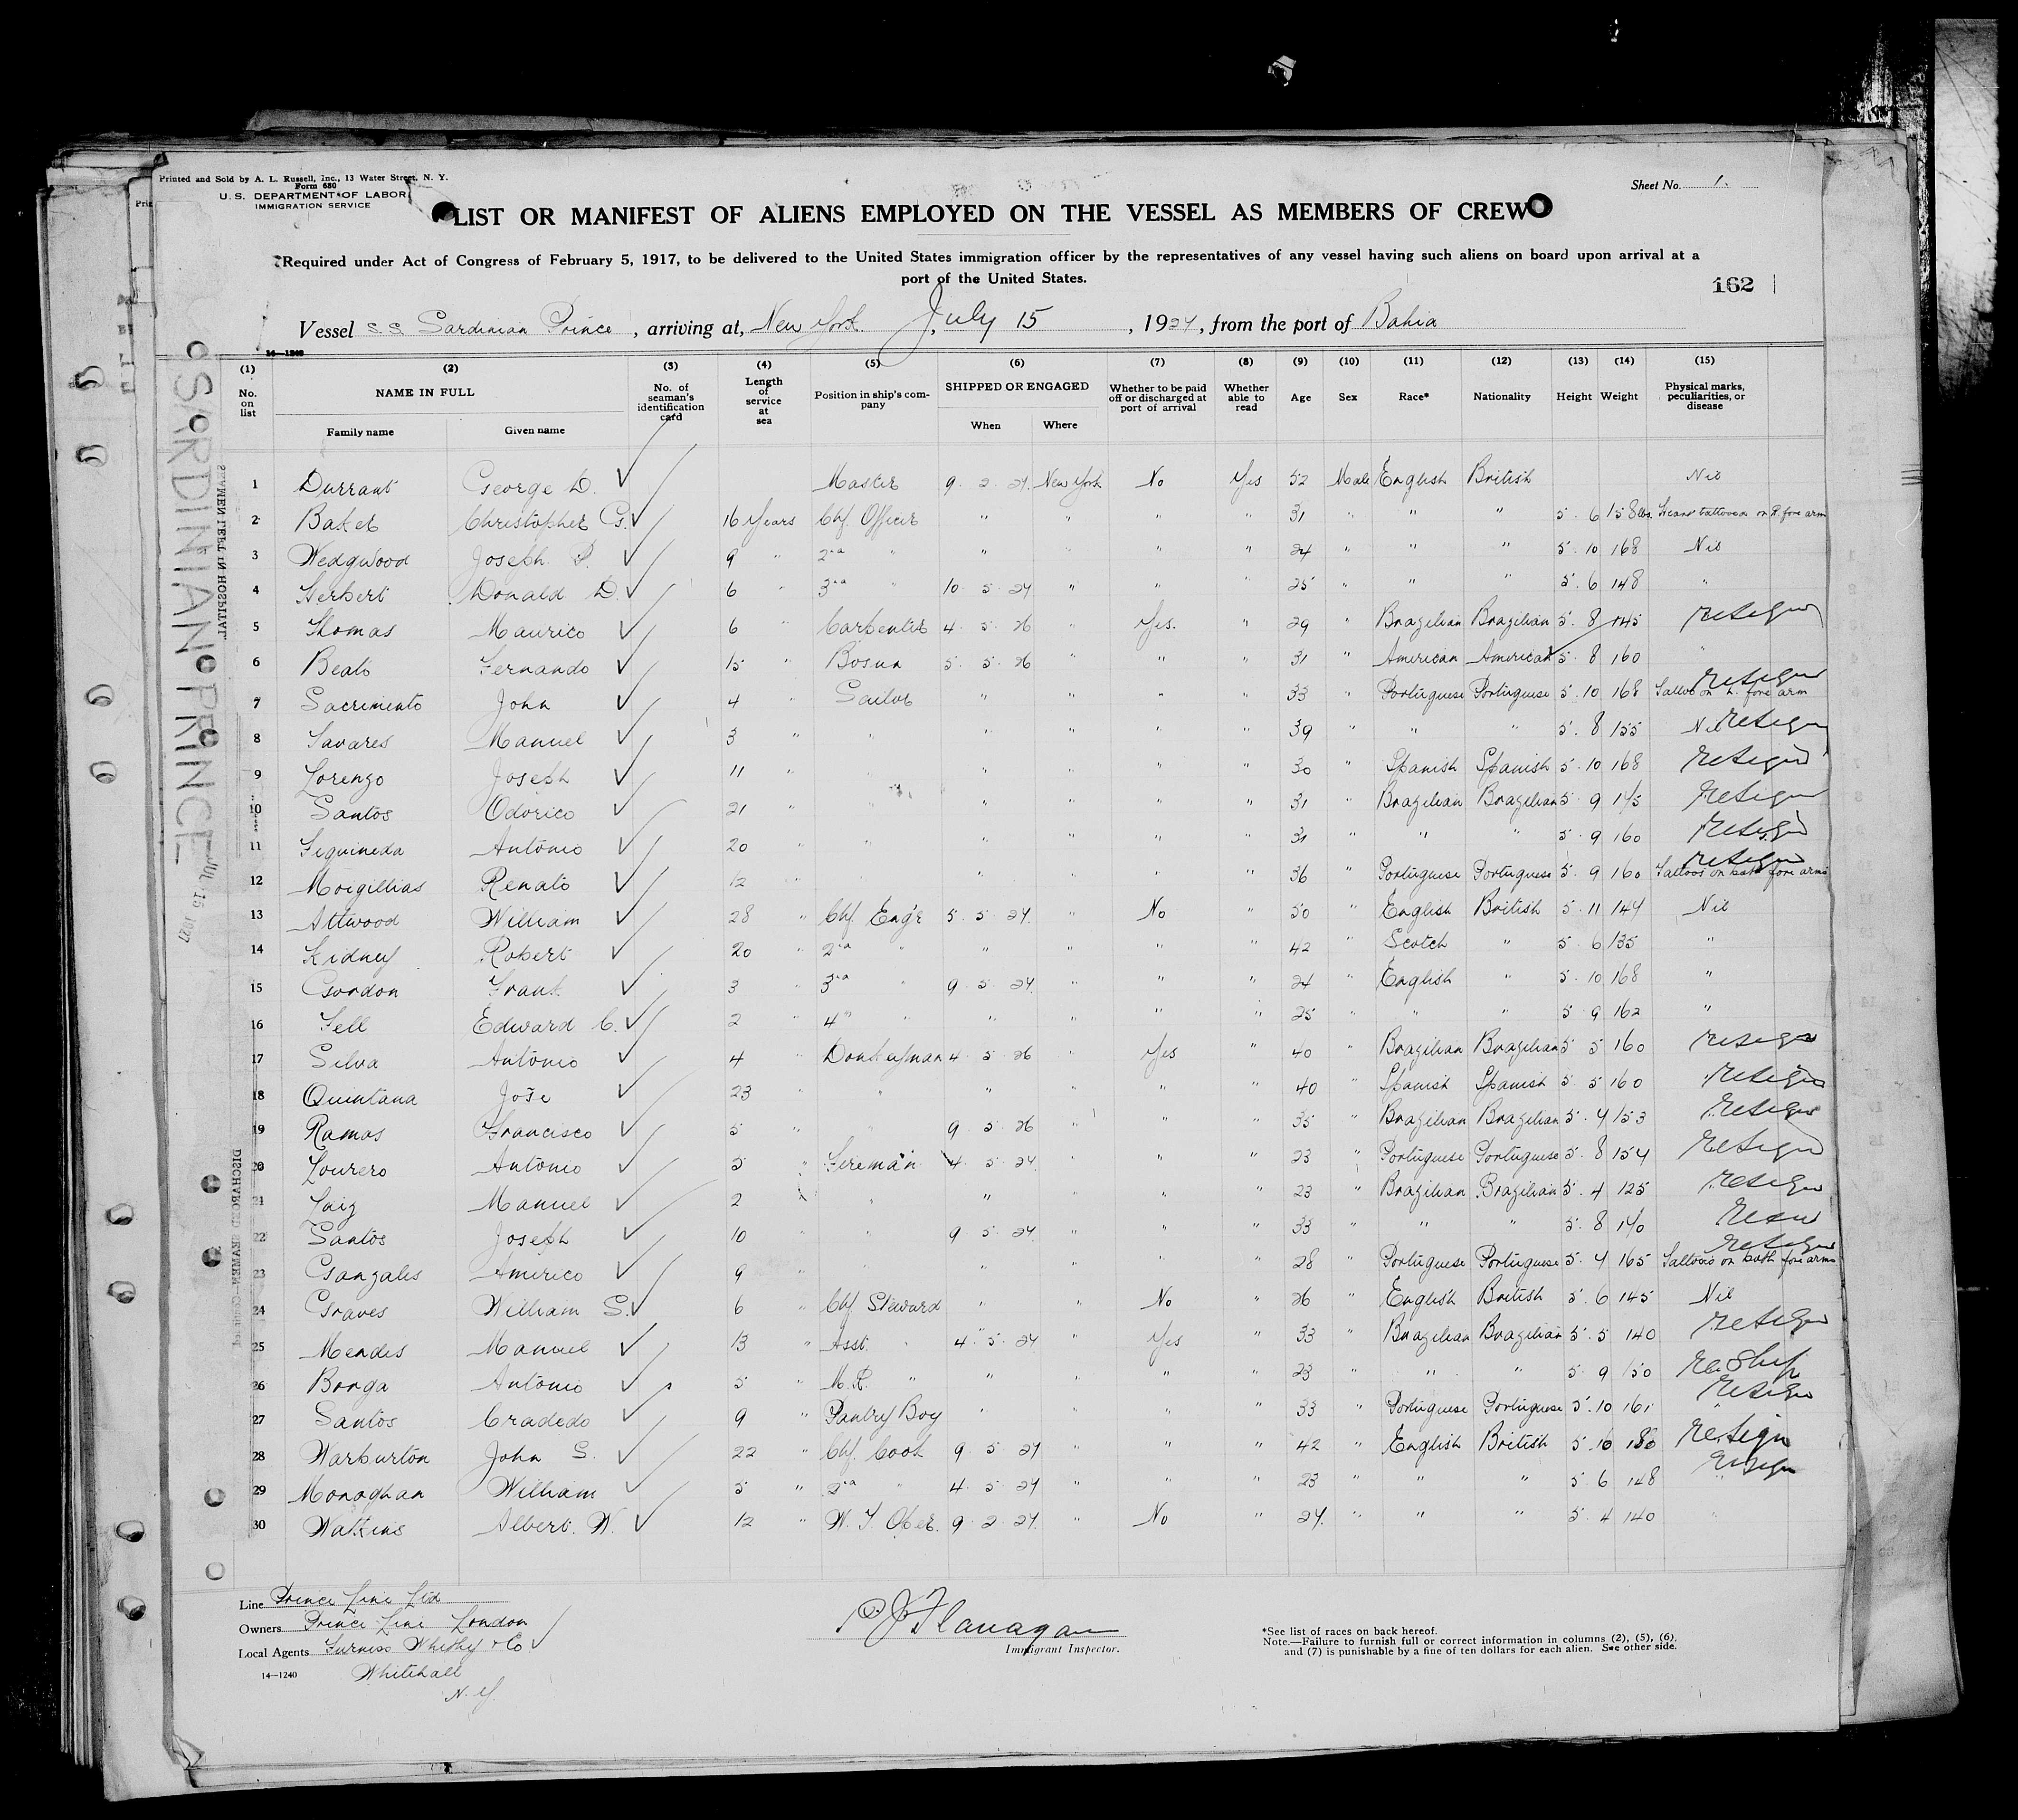 Printed and Sold by A. L. Russell, Inc., 13 Water Street, N. Y.
Form 680
U. S. DEPARTMENT OF LABOR
IMMIGRATION SERVICE
Sheet No. 1.
LIST OR MANIFEST OF ALIENS EMPLOYED ON THE VESSEL AS MEMBERS OF CREW
Required under Act of Congress of February 5, 1917, to be delivered to the United States immigration officer by the representatives of any vessel having such aliens on board upon arrival at a
port of the United States.
162
Vessel S S Sardinian Prince, arriving at, New York July 15, 1927, from the port of Bahia
14—1240
(1) (2) (3) (4) (5) (6) (7) (8) (9) (10) (11) (12) (13) (14) (15)
No. on list NAME IN FULL Family name Given name No. of seaman's identification card Length of service at sea Position in ship's company SHIPPED OR ENGAGED When Where Whether to be paid off or discharged at port of arrival Whether able to read Age Sex Race* Nationality Height Weight Physical marks, peculiarities, or disease
1 Durrant George D. Master 9 2 27 New York No Yes 52 Male English British Nil
2 Baker Christopher G. 16 Years Chf. Officer " " " " 31 " " " 5 6 158 lbs. tattooed on R. fore arm
3 Wedgwood Joseph P. 9 " 2nd " " " " " 24 " " " 5 10 168 Nil
4 Herbert Donald D. 6 " 3rd " 10 5 27 " " " 25 " " " 5 6 148 "
5 Thomas Maurico 6 " Carpenter 4 5 26 " Yes. " 29 " Brazilian Brazilian 5 8 145 resign
6 Beato Fernando 15 " Bosun 5 5 26 " " " 31 " American American 5 8 160 "
7 Sacrimento John 4 " Sailor " " " " 33 " Portuguese Portuguese 5 10 168 Tattoo on L. fore arm resign
8 Tavares Manuel 3 " " " " " " 39 " " " 5 8 155 Nil resign
9 Lorenzo Joseph 11 " " " " " " 30 " Spanish Spanish 5 10 168 resign
10 Santos Odorico 21 " " " " " " 31 " Brazilian Brazilian 5 9 145 resign
11 Antonio 20 " " " " " " 31 " " " 5 9 160 resign
12 Renato 12 " " " " " " 36 " Portuguese Portuguese 5 9 160 Tattoos on both fore arms resign
13 Attwood William 28 " Chf Eng'r 5 5 27 " No " 50 " English British 5 11 144 Nil
14 Kidney Robert 20 " 2nd " " " " " 42 " Scotch " 5 6 135 "
15 Gordon Frank 3 " 3rd " 9 5 27 " " " 24 " English " 5 10 168 "
16 Fell Edward C. 2 " 4th " " " " " 25 " " " 5 9 162 "
17 Silva Antonio 4 " Donkeyman 4 5 26 " Yes " 40 " Brazilian Brazilian 5 5 160 resign
18 Quintana Jose 23 " " " " " " 40 " Spanish Spanish 5 5 160 resign
19 Ramos Francisco 5 " " 9 5 26 " " " 35 " Brazilian Brazilian 5 4 153 resign
20 Lourero Antonio 5 " Fireman 4 5 27 " " " 23 " Portuguese Portuguese 5 8 154 resign
21 Manuel 2 " " " " " 23 " Brazilian Brazilian 5 4 125 resign
22 Santos Joseph 10 " " 9 5 27 " " " 33 " " " 5 8 140
23 Gonzales Americo 9 " " " " " " 28 " Portuguese Portuguese 5 4 165 Tattoos on both fore arms resign
24 Graves William S. 6 " Chf Steward " " No " 26 " English British 5 6 145 Nil
25 Mendes Manuel 13 " Asst. " 4 5 27 " Yes " 33 " Brazilian Brazilian 5 5 140 resign
26 Borga Antonio 5 " M.R. " " " " " 23 " " " 5 9 150 Re Ship
27 Santos Cradedo 9 " Pantry Boy " " " " 33 " Portuguese Portuguese 5 10 161 resign
28 Warburton John S. 22 " Chf. Cook 9 5 27 " " " 42 " English British 5 10 180 resign
29 Monaghan William 5 " 2nd " 4 5 27 " " " 23 " " " 5 6 148 resign
30 Watkins Albert. W. 12 " W. T. Oper. 9 2 27 " No " 27 " " " 5 4 140 "
SARDINIAN PRINCE JUL 15 1927
SEAMEN LEFT IN HOSPITAL
Line Prince Line Ltd
Owners Prince Line London
Local Agents Furness Withy & Co
Whitehall
N. Y.
14—1240
P J Flanagan
Immigrant Inspector.
*See list of races on back hereof.
Note.—Failure to furnish full or correct information in columns (2), (5), (6),
and (7) is punishable by a fine of ten dollars for each alien. See other side.